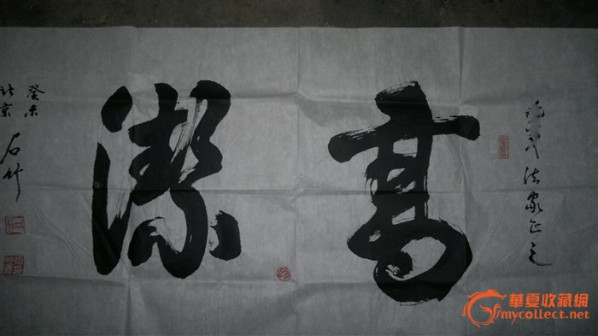 高潔
法家正之
癸未
於京
石竹
華夏收藏網
mycollect.net